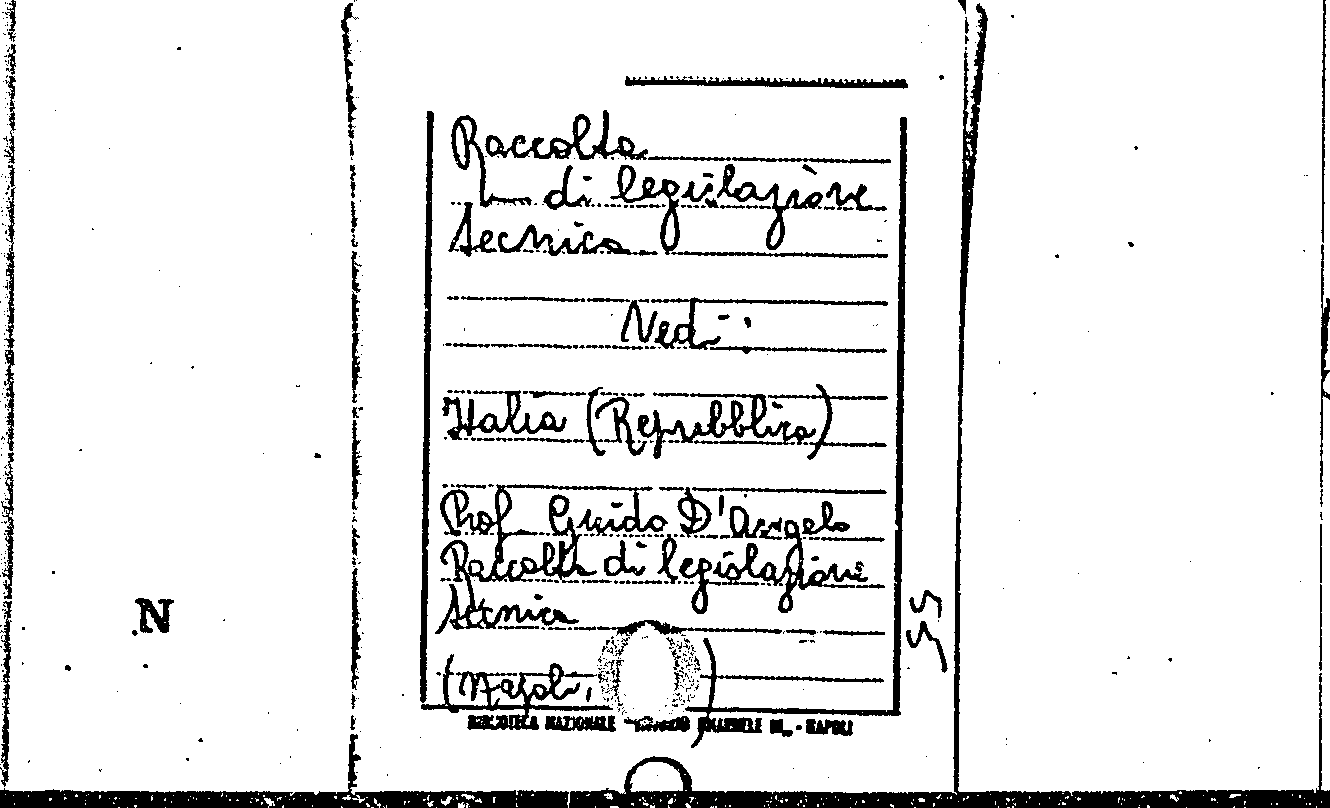 Raccolta
di legislazione
tecnica
Vedi:
Italia (Repubblica)
Prof. Guido D'Angelo
Raccolta di legislazione
tecnica
(Napoli, )
BIBLIOTECA NAZIONALE VITTORIO EMANUELE III - NAPOLI
N
55